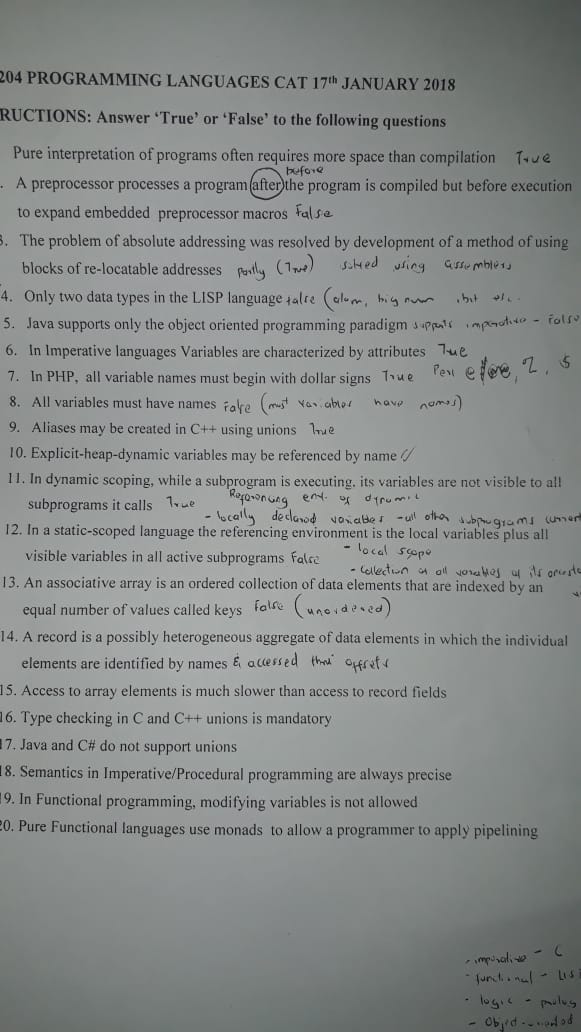 204 PROGRAMMING LANGUAGES CAT 17th JANUARY 2018
RUCTIONS: Answer ‘True’ or ‘False’ to the following questions
Pure interpretation of programs often requires more space than compilation True
before
. A preprocessor processes a program after the program is compiled but before execution
to expand embedded preprocessor macros False
3. The problem of absolute addressing was resolved by development of a method of using
blocks of re-locatable addresses Partly (True) solved using assemblers
4. Only two data types in the LISP language false (atom, big num, bit
5. Java supports only the object oriented programming paradigm supports imperative - False
6. In Imperative languages Variables are characterized by attributes True
7. In PHP, all variable names must begin with dollar signs True Perl @, %, $
8. All variables must have names False (most variables have names)
9. Aliases may be created in C++ using unions True
10. Explicit-heap-dynamic variables may be referenced by name
11. In dynamic scoping, while a subprogram is executing, its variables are not visible to all
subprograms it calls True Referencing env. of dynamic
- locally declared variables - all other subprograms
12. In a static-scoped language the referencing environment is the local variables plus all
visible variables in all active subprograms False - local scope
- collection of all variables of its
13. An associative array is an ordered collection of data elements that are indexed by an
equal number of values called keys False (unordered)
14. A record is a possibly heterogeneous aggregate of data elements in which the individual
elements are identified by names & accessed thru' offsets
15. Access to array elements is much slower than access to record fields
16. Type checking in C and C++ unions is mandatory
17. Java and C# do not support unions
18. Semantics in Imperative/Procedural programming are always precise
19. In Functional programming, modifying variables is not allowed
20. Pure Functional languages use monads to allow a programmer to apply pipelining
- imperative - C
- functional - LIS
- logic - prolog
- Object-oriented